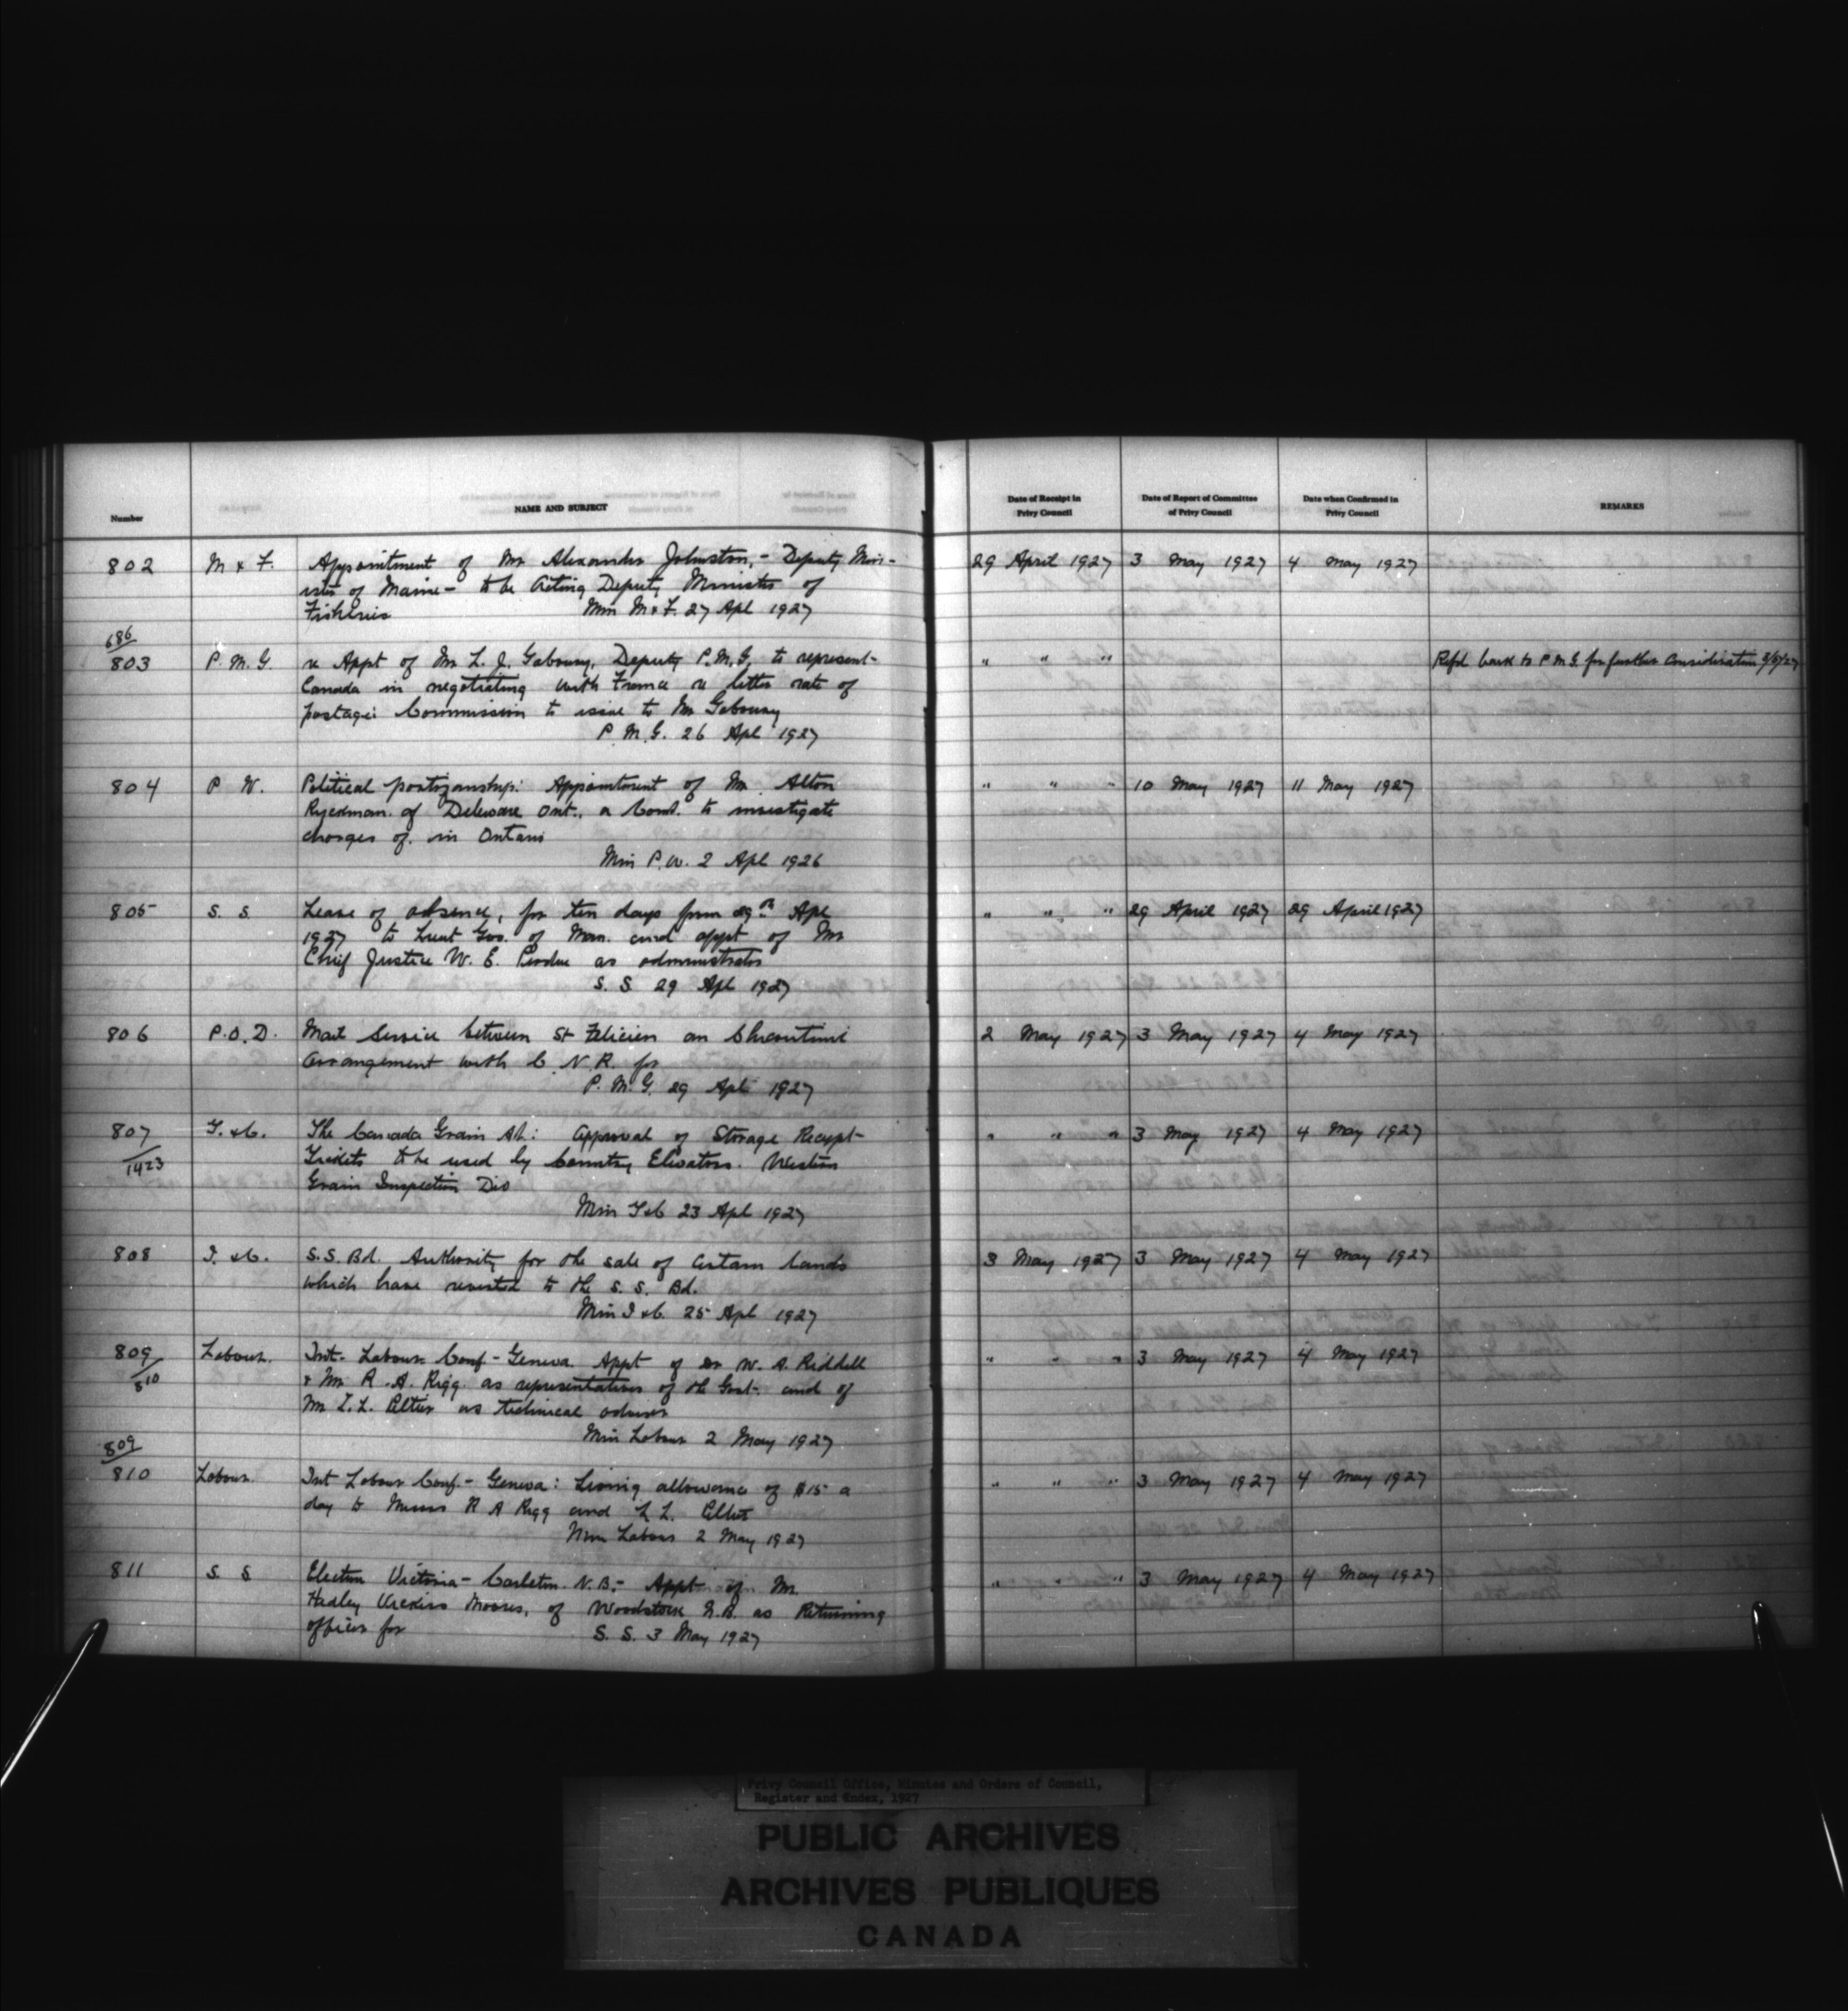 Number
NAME AND SUBJECT
Date of Receipt in Privy Council
Date of Report of Committee of Privy Council
Date when Confirmed in Privy Council
REMARKS
802 M & F. Appointment of Mr Alexander Johnston, - Deputy Min-
ister of Marine - to be Acting Deputy Minister of
Fisheries Min M & F. 27 Apl 1927
29 April 1927 3 May 1927 4 May 1927
686
803 P. M. G re Appt of Mr L. J. Gaboury, Deputy P.M.G. to represent
Canada in negotiating with France re letter rate of
postage: Commission to issue to Mr Gaboury
P. M. G. 26 Apl 1927
" " " Refd back to P M G. for further consideration
804 P W. Political partizanship: Appointment of Mr. Alton
Ryckman of Delaware Ont., a Comr. to investigate
charges of. in Ontario
Min P. W. 2 Apl 1926
" " " 10 May 1927 11 May 1927
805 S. S. Leave of absence, for ten days from 29th Apl
1927 to Lieut Gov. of Man. and appt of Mr
Chief Justice W. E. Perdue as administrator
S. S 29 Apl 1927
" " " 29 April 1927 29 April 1927
806 P. O. D. Mail Service between St Felicien an Chicoutimi
Arrangement with C. N. R. for
P. M. G. 29 Apl 1927
2 May 1927 3 May 1927 4 May 1927
807 T. & C. The Canada Grain Act: Approval of Storage Receipt
1423 Tickets to be used by Country Elevators. Western
Grain Inspection Div
Min T & C 23 Apl 1927
" " " 3 May 1927 4 May 1927
808 I. & C. S. S. Bd. Authority for the sale of certain lands
which have reverted to the S. S. Bd.
Min I & C. 25 Apl 1927
3 May 1927 3 May 1927 4 May 1927
809 Labour. Int. Labour Conf - Geneva. Appt of Dr W. A. Riddell
810 & Mr R. A. Rigg. as representatives of the Govt. and of
Mr as technical adviser
Min Labour 2 May 1927
" " " 3 May 1927 4 May 1927
809
810 Labour. Int Labour Conf - Geneva: Living allowance of $15 a
day to Messrs R A Rigg and
Min Labour 2 May 1927
" " " 3 May 1927 4 May 1927
811 S. S Election Victoria - Carleton. N. B. - Appt of Mr
Hadley of Woodstock N.B. as Returning
officer for S. S. 3 May 1927
" " " 3 May 1927 4 May 1927
Privy Council Office, Minutes and Orders of Council,
Register and Index, 1927
PUBLIC ARCHIVES
ARCHIVES PUBLIQUES
CANADA